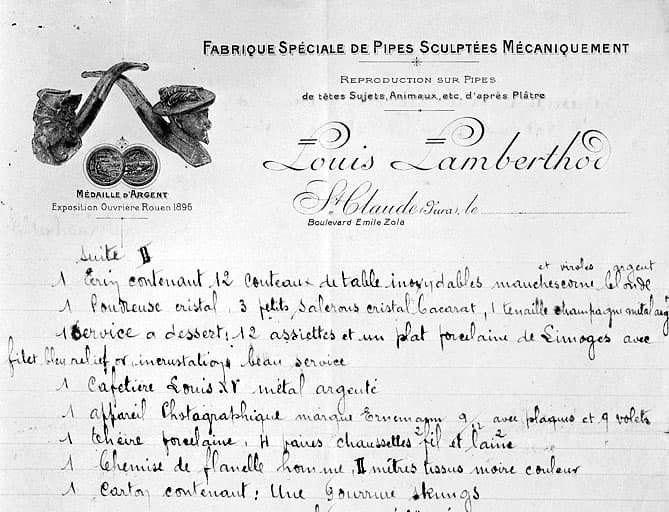 FABRIQUE SPÉCIALE DE PIPES SCULPTÉES MÉCANIQUEMENT
REPRODUCTION SUR PIPES
de têtes Sujets, Animaux, etc. d'après Plâtre
Louis Lamberthod
St Claude (Jura), le
Boulevard Emile Zola
MÉDAILLE D'ARGENT
Exposition Ouvrière Rouen 1896
Suite II
et viroles argent
1 Ecrin contenant 12 couteaux de table inoxydables manches corne blonde
1 Poudreuse cristal, 3 petits salerons cristal Bacarat, 1 tenaille champagne metal arg
1 Service a dessert: 12 assiettes et un plat porcelaine de Limoges avec
filet bleu relief or, incrustations beau service
1 Cafetière Louis XV métal argenté
1 appareil Photagraphique marque Ernemann 9/12 avec plaques et 9 volets
1 théière porcelaine, 4 paires chaussettes 2 fil et laine 2
1 Chemise de flanelle homme, II mètres tissus moire couleur
1 Carton contenant: Une gourrure skungs